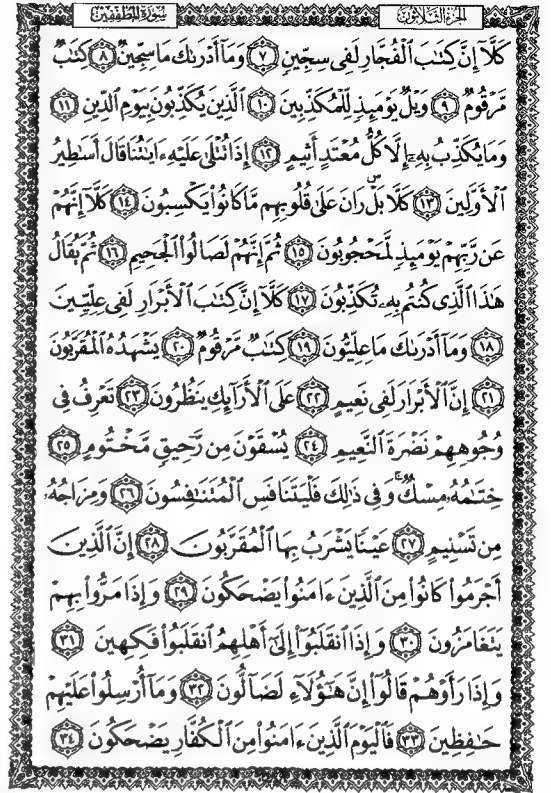 سُورَةُ المُطَفِّفِينَ الجُزءُ الثَّلَاثُونَ
كَلَّآ إِنَّ كِتَٰبَ ٱلْفُجَّارِ لَفِى سِجِّينٍ ٧ وَمَآ أَدْرَىٰكَ مَا سِجِّينٌ ٨ كِتَٰبٌ
مَّرْقُومٌ ٩ وَيْلٌ يَوْمَئِذٍ لِّلْمُكَذِّبِينَ ١٠ ٱلَّذِينَ يُكَذِّبُونَ بِيَوْمِ ٱلدِّينِ ١١
وَمَا يُكَذِّبُ بِهِۦٓ إِلَّا كُلُّ مُعْتَدٍ أَثِيمٍ ١٢ إِذَا تُتْلَىٰ عَلَيْهِ ءَايَٰتُنَا قَالَ أَسَٰطِيرُ
ٱلْأَوَّلِينَ ١٣ كَلَّا بَلْۜ رَانَ عَلَىٰ قُلُوبِهِم مَّا كَانُوا۟ يَكْسِبُونَ ١٤ كَلَّآ إِنَّهُمْ
عَن رَّبِّهِمْ يَوْمَئِذٍ لَّمَحْجُوبُونَ ١٥ ثُمَّ إِنَّهُمْ لَصَالُوا۟ ٱلْجَحِيمِ ١٦ ثُمَّ يُقَالُ
هَٰذَا ٱلَّذِى كُنتُم بِهِۦ تُكَذِّبُونَ ١٧ كَلَّآ إِنَّ كِتَٰبَ ٱلْأَبْرَارِ لَفِى عِلِّيِّينَ
١٨ وَمَآ أَدْرَىٰكَ مَا عِلِّيُّونَ ١٩ كِتَٰبٌ مَّرْقُومٌ ٢٠ يَشْهَدُهُ ٱلْمُقَرَّبُونَ
٢١ إِنَّ ٱلْأَبْرَارَ لَفِى نَعِيمٍ ٢٢ عَلَى ٱلْأَرَآئِكِ يَنظُرُونَ ٢٣ تَعْرِفُ فِى
وُجُوهِهِمْ نَضْرَةَ ٱلنَّعِيمِ ٢٤ يُسْقَوْنَ مِن رَّحِيقٍ مَّخْتُومٍ ٢٥
خِتَٰمُهُۥ مِسْكٌ ۚ وَفِى ذَٰلِكَ فَلْيَتَنَافَسِ ٱلْمُتَنَٰفِسُونَ ٢٦ وَمِزَاجُهُۥ
مِن تَسْنِيمٍ ٢٧ عَيْنًا يَشْرَبُ بِهَا ٱلْمُقَرَّبُونَ ٢٨ إِنَّ ٱلَّذِينَ
أَجْرَمُوا۟ كَانُوا۟ مِنَ ٱلَّذِينَ ءَامَنُوا۟ يَضْحَكُونَ ٢٩ وَإِذَا مَرُّوا۟ بِهِمْ
يَتَغَامَزُونَ ٣٠ وَإِذَا ٱنقَلَبُوٓا۟ إِلَىٰٓ أَهْلِهِمُ ٱنقَلَبُوا۟ فَكِهِينَ ٣١
وَإِذَا رَأَوْهُمْ قَالُوٓا۟ إِنَّ هَٰٓؤُلَآءِ لَضَآلُّونَ ٣٢ وَمَآ أُرْسِلُوا۟ عَلَيْهِمْ
حَٰفِظِينَ ٣٣ فَٱلْيَوْمَ ٱلَّذِينَ ءَامَنُوا۟ مِنَ ٱلْكُفَّارِ يَضْحَكُونَ ٣٤